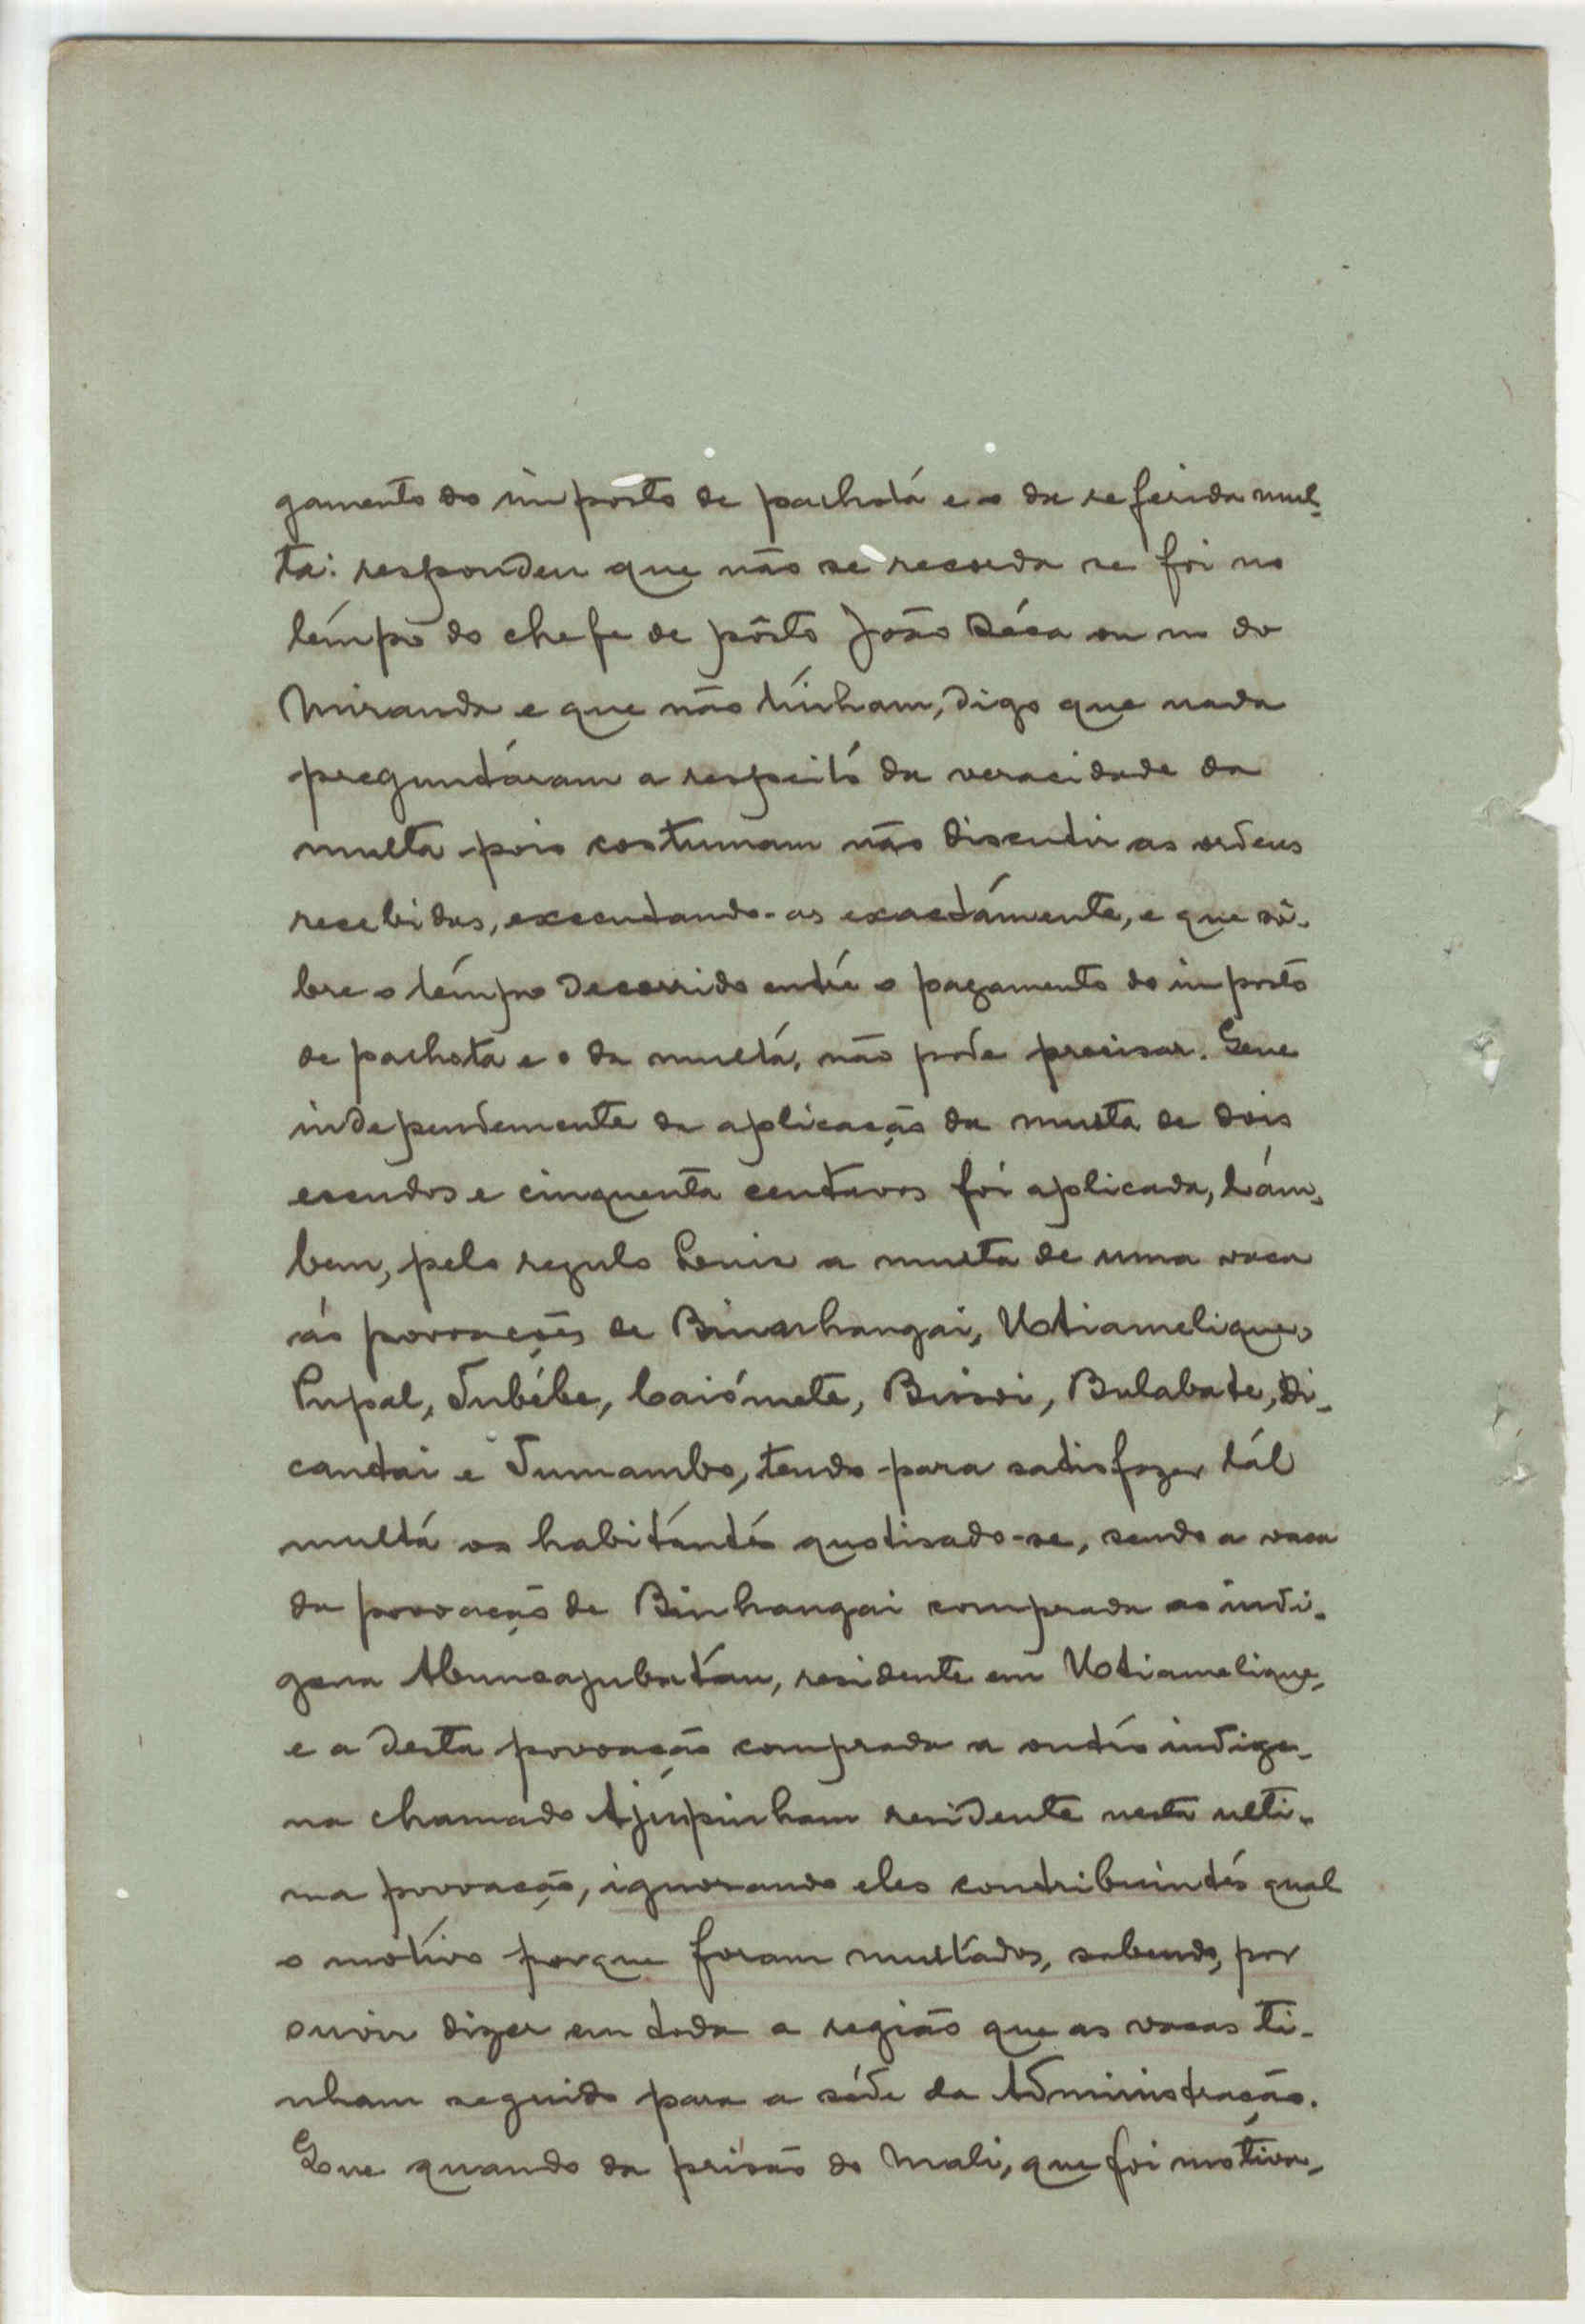 gamento do imposto de palhota e o da referida mul-
ta: respondeu que não se recorda se foi no
tempo do chefe de pôsto João Déca ou no do
Miranda e que não tinham, digo que nada
preguntáram a respeito da veracidade da
multa pois costumam não discutir as ordens
recebidas, executando-as exactamente, e que sô-
bre o tempo decorrido entre o pagamento do imposto
de palhota e o da multa, não pode precisar. Que
independemente da aplicação da multa de dois
escudos e cinquenta centavos foi aplicada, tam-
bem, pelo regulo Luis a multa de uma vaca
ás povoações de Binarhangai, Utiamelique,
Pupal, Jubébe, Caiómete, Bissoi, Bulabate, Di-
cantai e Jumambo, tendo para satisfazer tál
multa os habitantes quotisado-se, sendo a vaca
da povoação de Binhangai comprada ao indi-
gena residente em Utiamelique,
e a desta povoação comprada a outro indige-
na chamado Ajúpinham residente nesta ulti-
ma povoação, ignorando eles contribuintes qual
o motivo porque foram multados, sabendo, por
ouvir dizer em toda a região que as vacas ti-
nham seguido para a séde da Administração.
Que quando da prisão do Mali, que foi motiva-